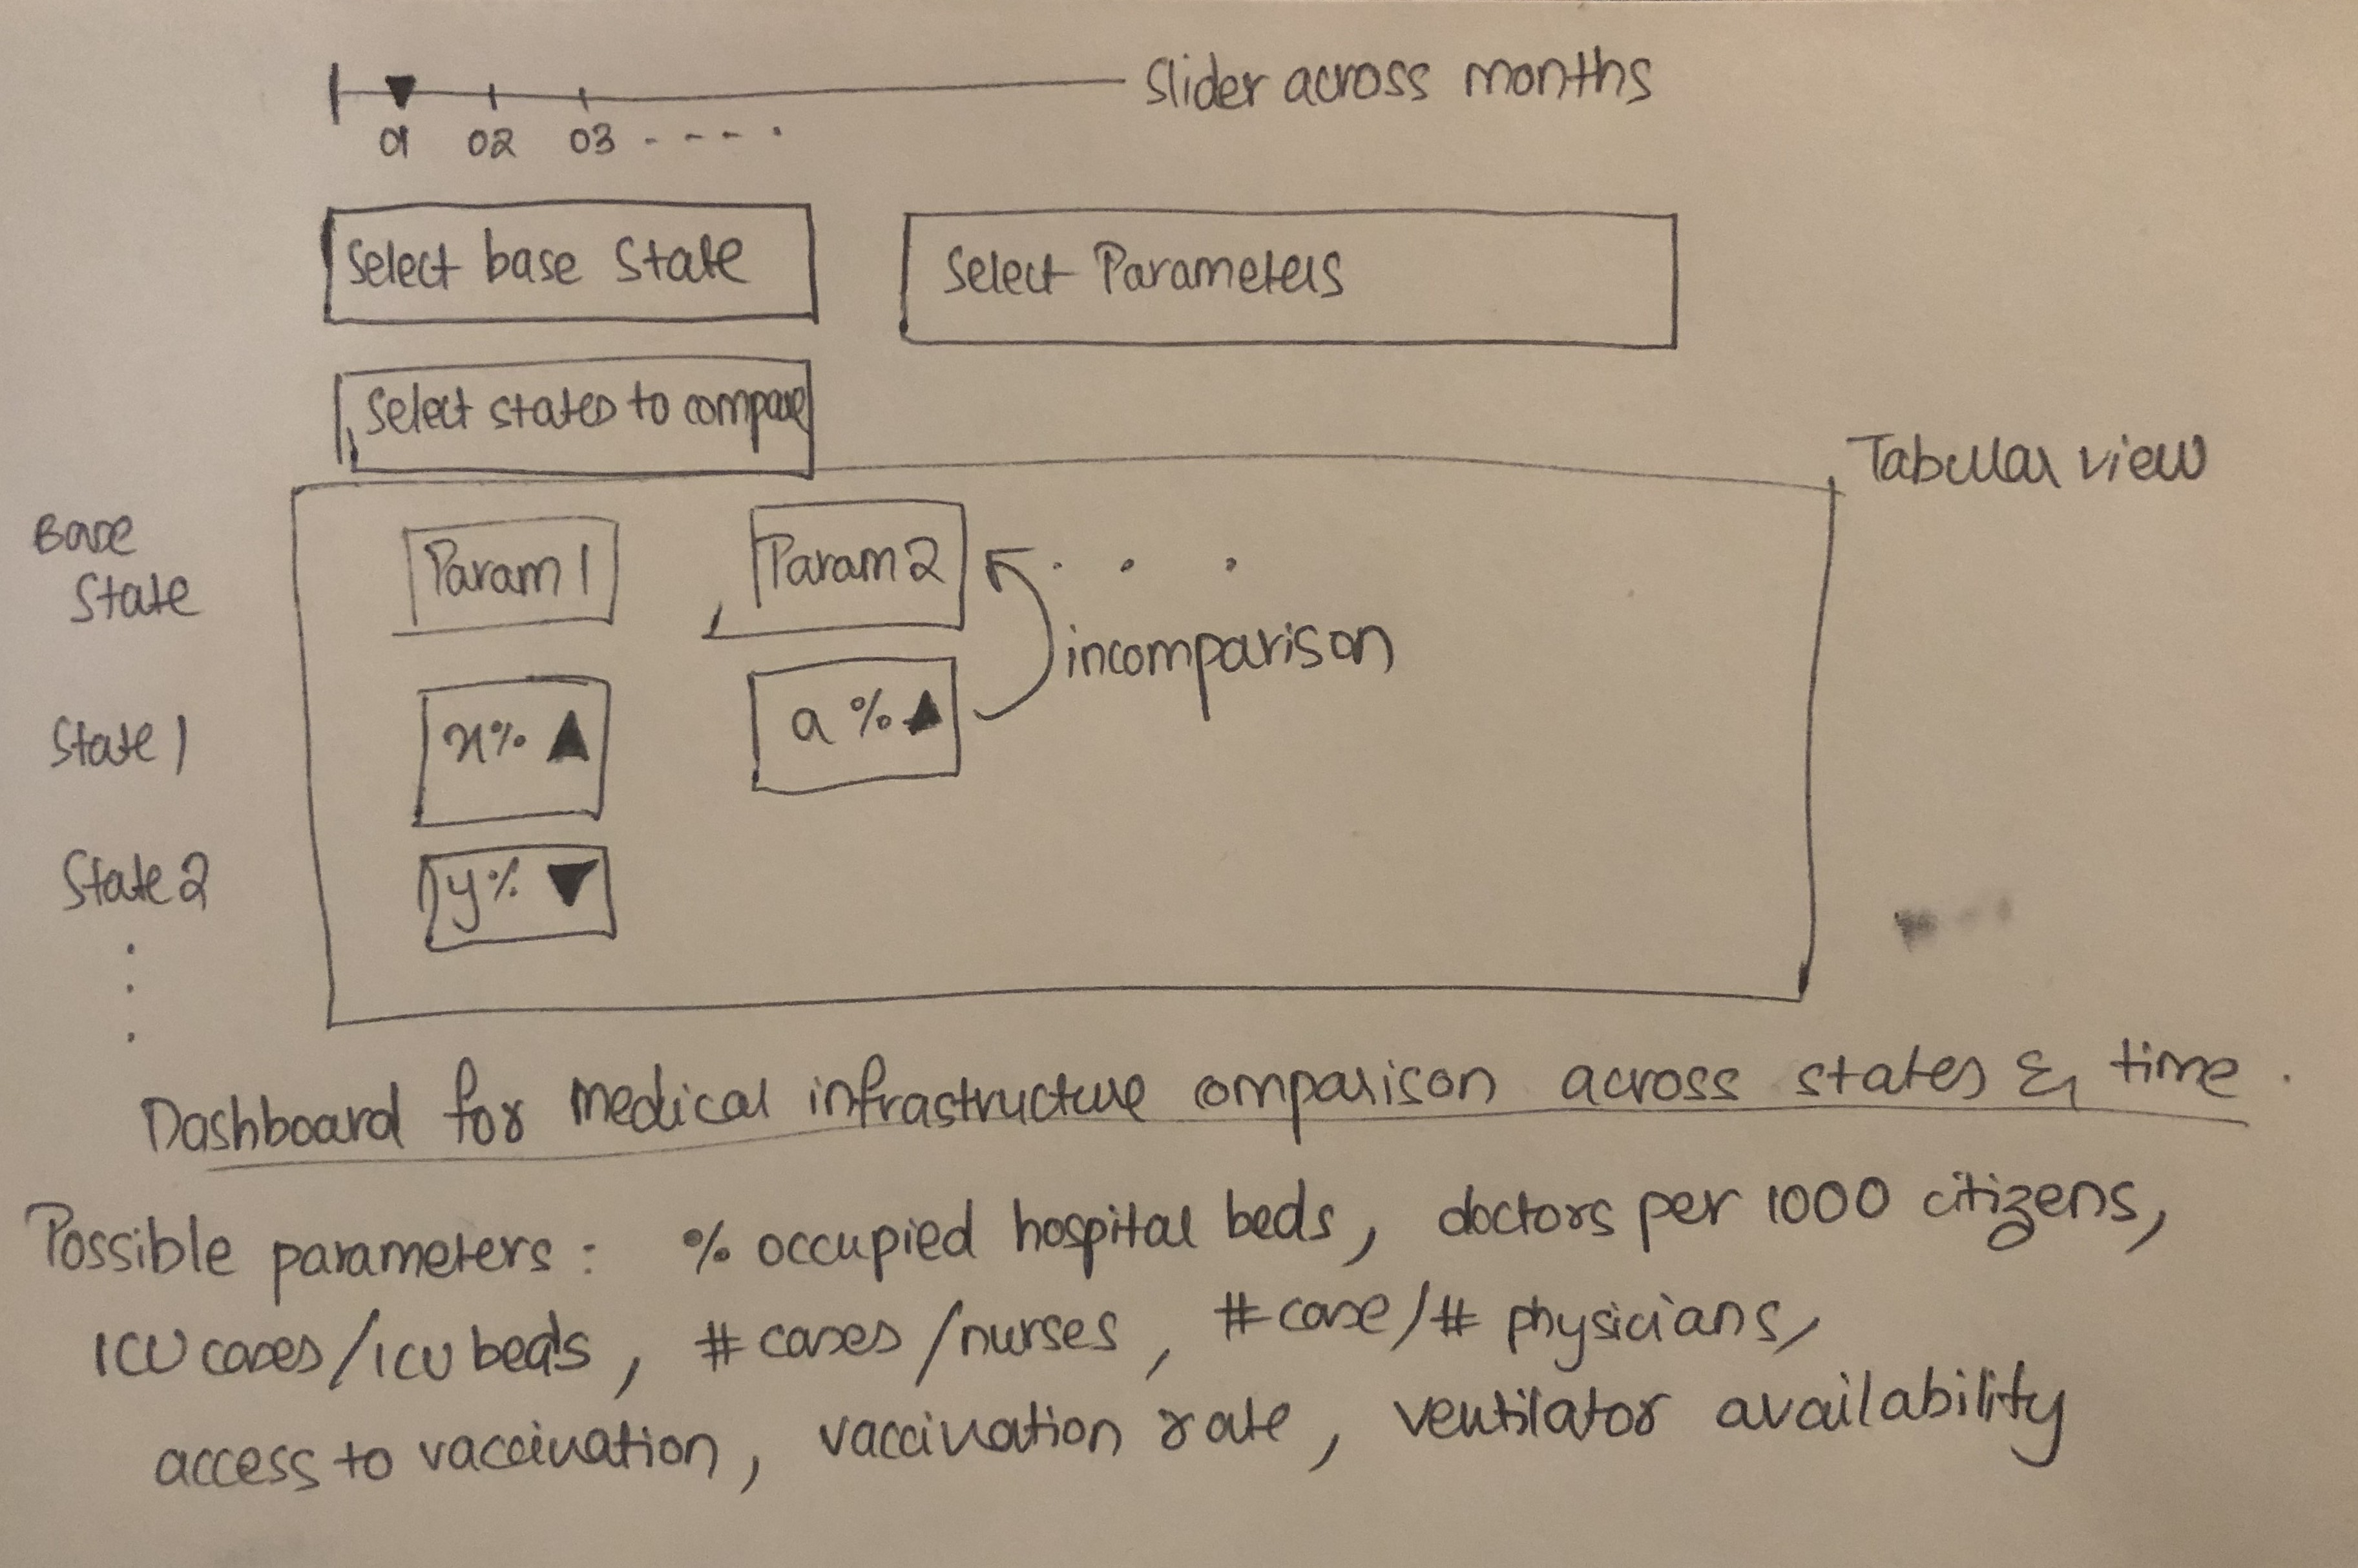 Slider across months
01 02 03 - - - - .
Select base State
Select Parameters
Select states to compare
Tabular view
Base
State
Param 1
Param 2
. . .
incomparison
State 1
x% ▲
a % ▲
State 2
y% ▼
Dashboard for medical infrastructure comparison across states & time .
Possible parameters : % occupied hospital beds, doctors per 1000 citizens,
ICU cases/ICU beds, # cases/nurses, # case/# physicians,
access to vaccination, vaccination rate, ventilator availability